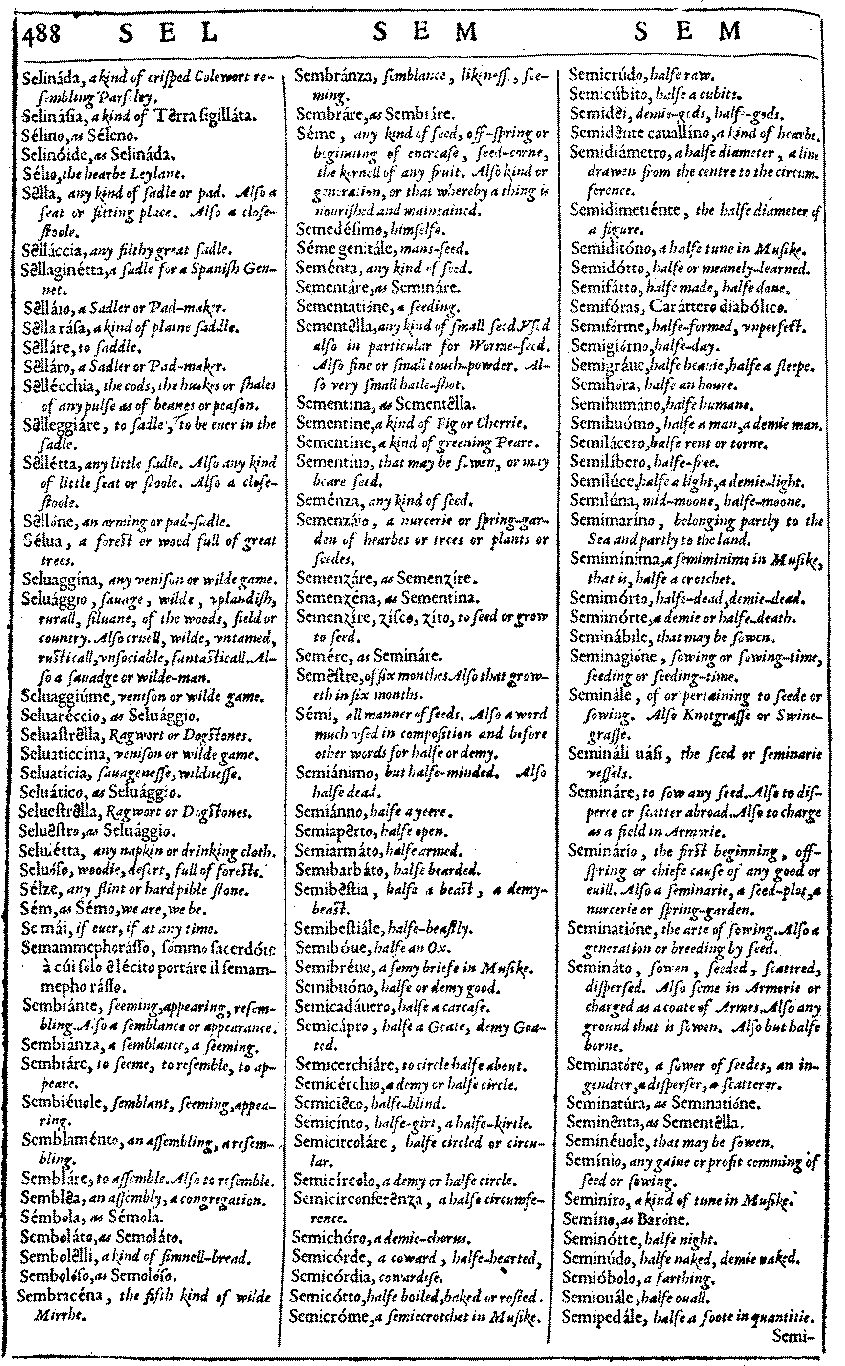 488 S E L S E M S E M
Selináda, a kind of crisped Colewort re-
sembling Parsley.
Selinásia, a kind of Tèrra sigilláta.
Sélino, as Séleno.
Selinóide, as Selináda.
Sélio, the hearbe Leylane.
Sèlla, any kind of sadle or pad. Also a
seat or sitting place. Also a close-
stoole.
Sèlláccia, any filthy great sadle.
Sèllaginétta, a sadle for a Spanish Gen-
net.
Sèlláio, a Sadler or Pad-maker.
Sèlla rása, a kind of plaine saddle.
Sèlláre, to saddle.
Sèlláro, a Sadler or Pad-maker.
Sèllécchia, the cods, the huskes or shales
of any pulse as of beanes or peason.
Sèlleggiáre, to sadle, to be euer in the
sadle.
Sèllétta, any little sadle. Also any kind
of little seat or stoole. Also a close-
stoole.
Sèllóne, an arming or pad-sadle.
Sélua, a forest or wood full of great
trees.
Seluaggína, any venison or wilde game.
Seluággio, sauage, wilde, vplandish,
rurall, siluane, of the woods, field or
country. Also cruell, wilde, vntamed,
rusticall, vnsociable, fantasticall. Al-
so a sauadge or wilde-man.
Seluaggiúme, venison or wilde game.
Seluaréccio, as Seluággio.
Seluastrèlla, Ragwort or Dogstones.
Seluaticcina, venison or wilde game.
Seluaticia, sauagenesse, wildnesse.
Seluático, as Seluággio.
Seluestrèlla, Ragwort or Dogstones.
Seluèstro, as Seluággio.
Seluétta, any napkin or drinking cloth.
Seluóso, woodie, desert, full of forests.
Sélze, any flint or hard pible stone.
Sém, as Sémo, we are, we be.
Se mái, if euer, if at any time.
Semammephorásso, sómmo sacerdóte
à cúi sólo è lécito portáre il semam-
mepho rásso.
Sembiánte, seeming, appearing, resem-
bling. Also a semblance or appearance.
Sembiánza, a semblance, a seeming.
Sembiáre, to seeme, to resemble, to ap-
peare.
Sembiéuole, semblant, seeming, appea-
ring.
Semblaménto, an assembling, a resem-
bling.
Sembláre, to assemble. Also to resemble.
Semblèa, an assembly, a congregation.
Sémbola, as Sémola.
Semboláto, as Semoláto.
Sembolèlli, a kind of simnell-bread.
Sembolóso, as Semolóso.
Sembracéna, the fifth kind of wilde
Mirrhe.
Sembránza, semblance, likenesse, see-
ming.
Sembráre, as Sembiáre.
Séme, any kind of seed, off-spring or
beginning of encrease, seed-corne,
the kernell of any fruit. Also kind or
generation, or that whereby a thing is
nourished and maintained.
Semedésimo, himselfe.
Séme genitále, mans-seed.
Seménta, any kind of seed.
Sementáre, as Semináre.
Sementatióne, a seeding.
Sementèlla, any kind of small seed. Vsed
also in particular for Worme-seed.
Also fine or small touch-powder. Al-
so very small haile-shot.
Sementina, as Sementèlla.
Sementine, a kind of Fig or Cherrie.
Sementine, a kind of greening Peare.
Sementiuo, that may be sowen, or may
beare seed.
Seménza, any kind of seed.
Semenzáio, a nurcerie or spring-gar-
den of hearbes or trees or plants or
seedes.
Semenzáre, as Semenzíre.
Semenzéna, as Sementina.
Semenzíre, zísco, zíto, to seed or grow
to seed.
Semére, as Semináre.
Semèstre, of six months. Also that grow-
eth in six months.
Sémi, all manner of seeds. Also a word
much vsed in composition and before
other words for halfe or demy.
Semiánimo, but halfe-minded. Also
halfe dead.
Semiánno, halfe a yeere.
Semiapèrto, halfe open.
Semiarmáto, halfe armed.
Semibarbáto, halfe bearded.
Semibèstia, halfe a beast, a demy-
beast.
Semibestiále, halfe-beastly.
Semibóue, halfe an Ox.
Semibréue, a semy briefe in Musike.
Semibuóno, halfe or demy good.
Semicadáuero, halfe a carcase.
Semicápro, halfe a Goate, demy Goa-
ted.
Semicerchiáre, to circle halfe about.
Semicérchio, a demy or halfe circle.
Semicièco, halfe-blind.
Semicínto, halfe-girt, a halfe-kirtle.
Semicircoláre, halfe circled or circu-
lar.
Semicírcolo, a demy or halfe circle.
Semicirconferènza, a halfe circumfe-
rence.
Semichóro, a demie-chorus.
Semicórde, a coward, halfe-hearted,
Semicórdia, cowardise.
Semicótto, halfe boiled, baked or rosted.
Semicróme, a semiecrotchet in Musike.
Semicrúdo, halfe raw.
Semicúbito, halfe a cubite.
Semidèi, demie-gods, half-gods.
Semidènte cauallíno, a kind of hearbe.
Semidiámetro, a halfe diameter, a line
drawen from the centre to the circum-
ference.
Semidimetiénte, the halfe diameter of
a figure.
Semiditóno, a halfe tune in Musike.
Semidótto, halfe or meanely-learned.
Semifátto, halfe made, halfe done.
Semifóras, Caráttero diabólico.
Semifórme, halfe-formed, vnperfect.
Semigiórno, halfe-day.
Semigráue, halfe heauie, halfe a sleepe.
Semihóra, half an houre.
Semihumáno, halfe humane.
Semihuómo, halfe a man, a demie man.
Semilácero, halfe rent or torne.
Semilíbero, halfe-free.
Semilúce, halfe a light, a demie-light.
Semilúna, mid-moone, halfe-moone.
Semimaríno, belonging partly to the
Sea and partly to the land.
Semimínima, a semiminime in Musike,
that is, halfe a crotchet.
Semimórto, halfe-dead, demie-dead.
Semimórte, a demie or halfe-death.
Seminábile, that may be sowen.
Seminagióne, sowing or sowing-time,
seeding or seeding-time.
Seminále, of or pertaining to seede or
sowing. Also Knotgrasse or Swine-
grasse.
Semináli uási, the seed or seminarie
vessels.
Semináre, to sow any seed. Also to dis-
perce or scatter abroad. Also to charge
as a field in Armorie.
Seminário, the first beginning, off-
spring or chiefe cause of any good or
euill. Also a seminarie, a seed-plot, a
nurcerie or spring-garden.
Seminatióne, the arte of sowing. Also a
generation or breeding by seed.
Semináto, sowen, seeded, scattred,
dispersed. Also seme in Armorie or
charged as a coate of Armes. Also any
ground that is sowen. Also but halfe
borne.
Seminatóre, a sower of seedes, an in-
gendrer, a disperser, a scatterer.
Seminatúra, as Seminatióne.
Seminènta, as Sementèlla.
Seminéuole, that may be sowen.
Semínio, any gaine or profit comming of
seed or sowing.
Seminíro, a kind of tune in Musike.
Semíno, as Baróne.
Seminótte, halfe night.
Seminúdo, halfe naked, demie naked.
Semióbolo, a farthing.
Semiouále, halfe ouall.
Semipedále, halfe a foote in quantitie.
Semi-